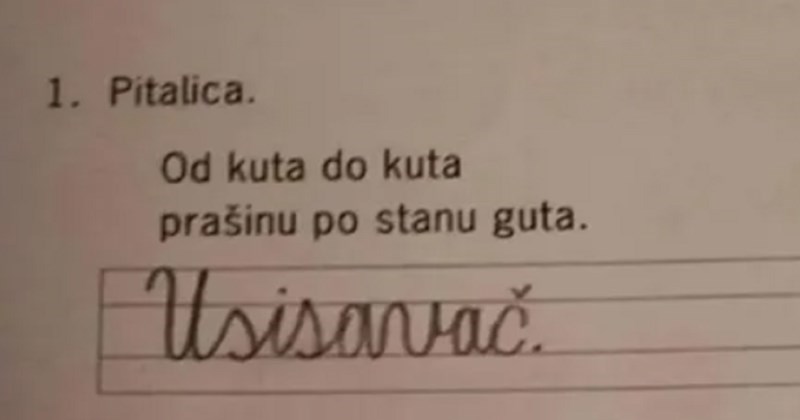 1. Pitalica.
Od kuta do kuta
prašinu po stanu guta.
Usisavač.